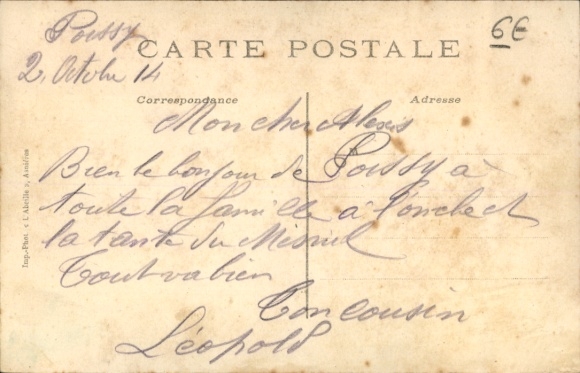 Poissy
6€
CARTE POSTALE
2 Octobre 14
Correspondance
Adresse
Mon cher Alexis
Bien le bonjour de Poissy à
toute la famille à l'oncle et
la tante du Mesnil
Tout va bien
Ton cousin
Léopold
Imp.-Phot. « L'Abeille », Asnières